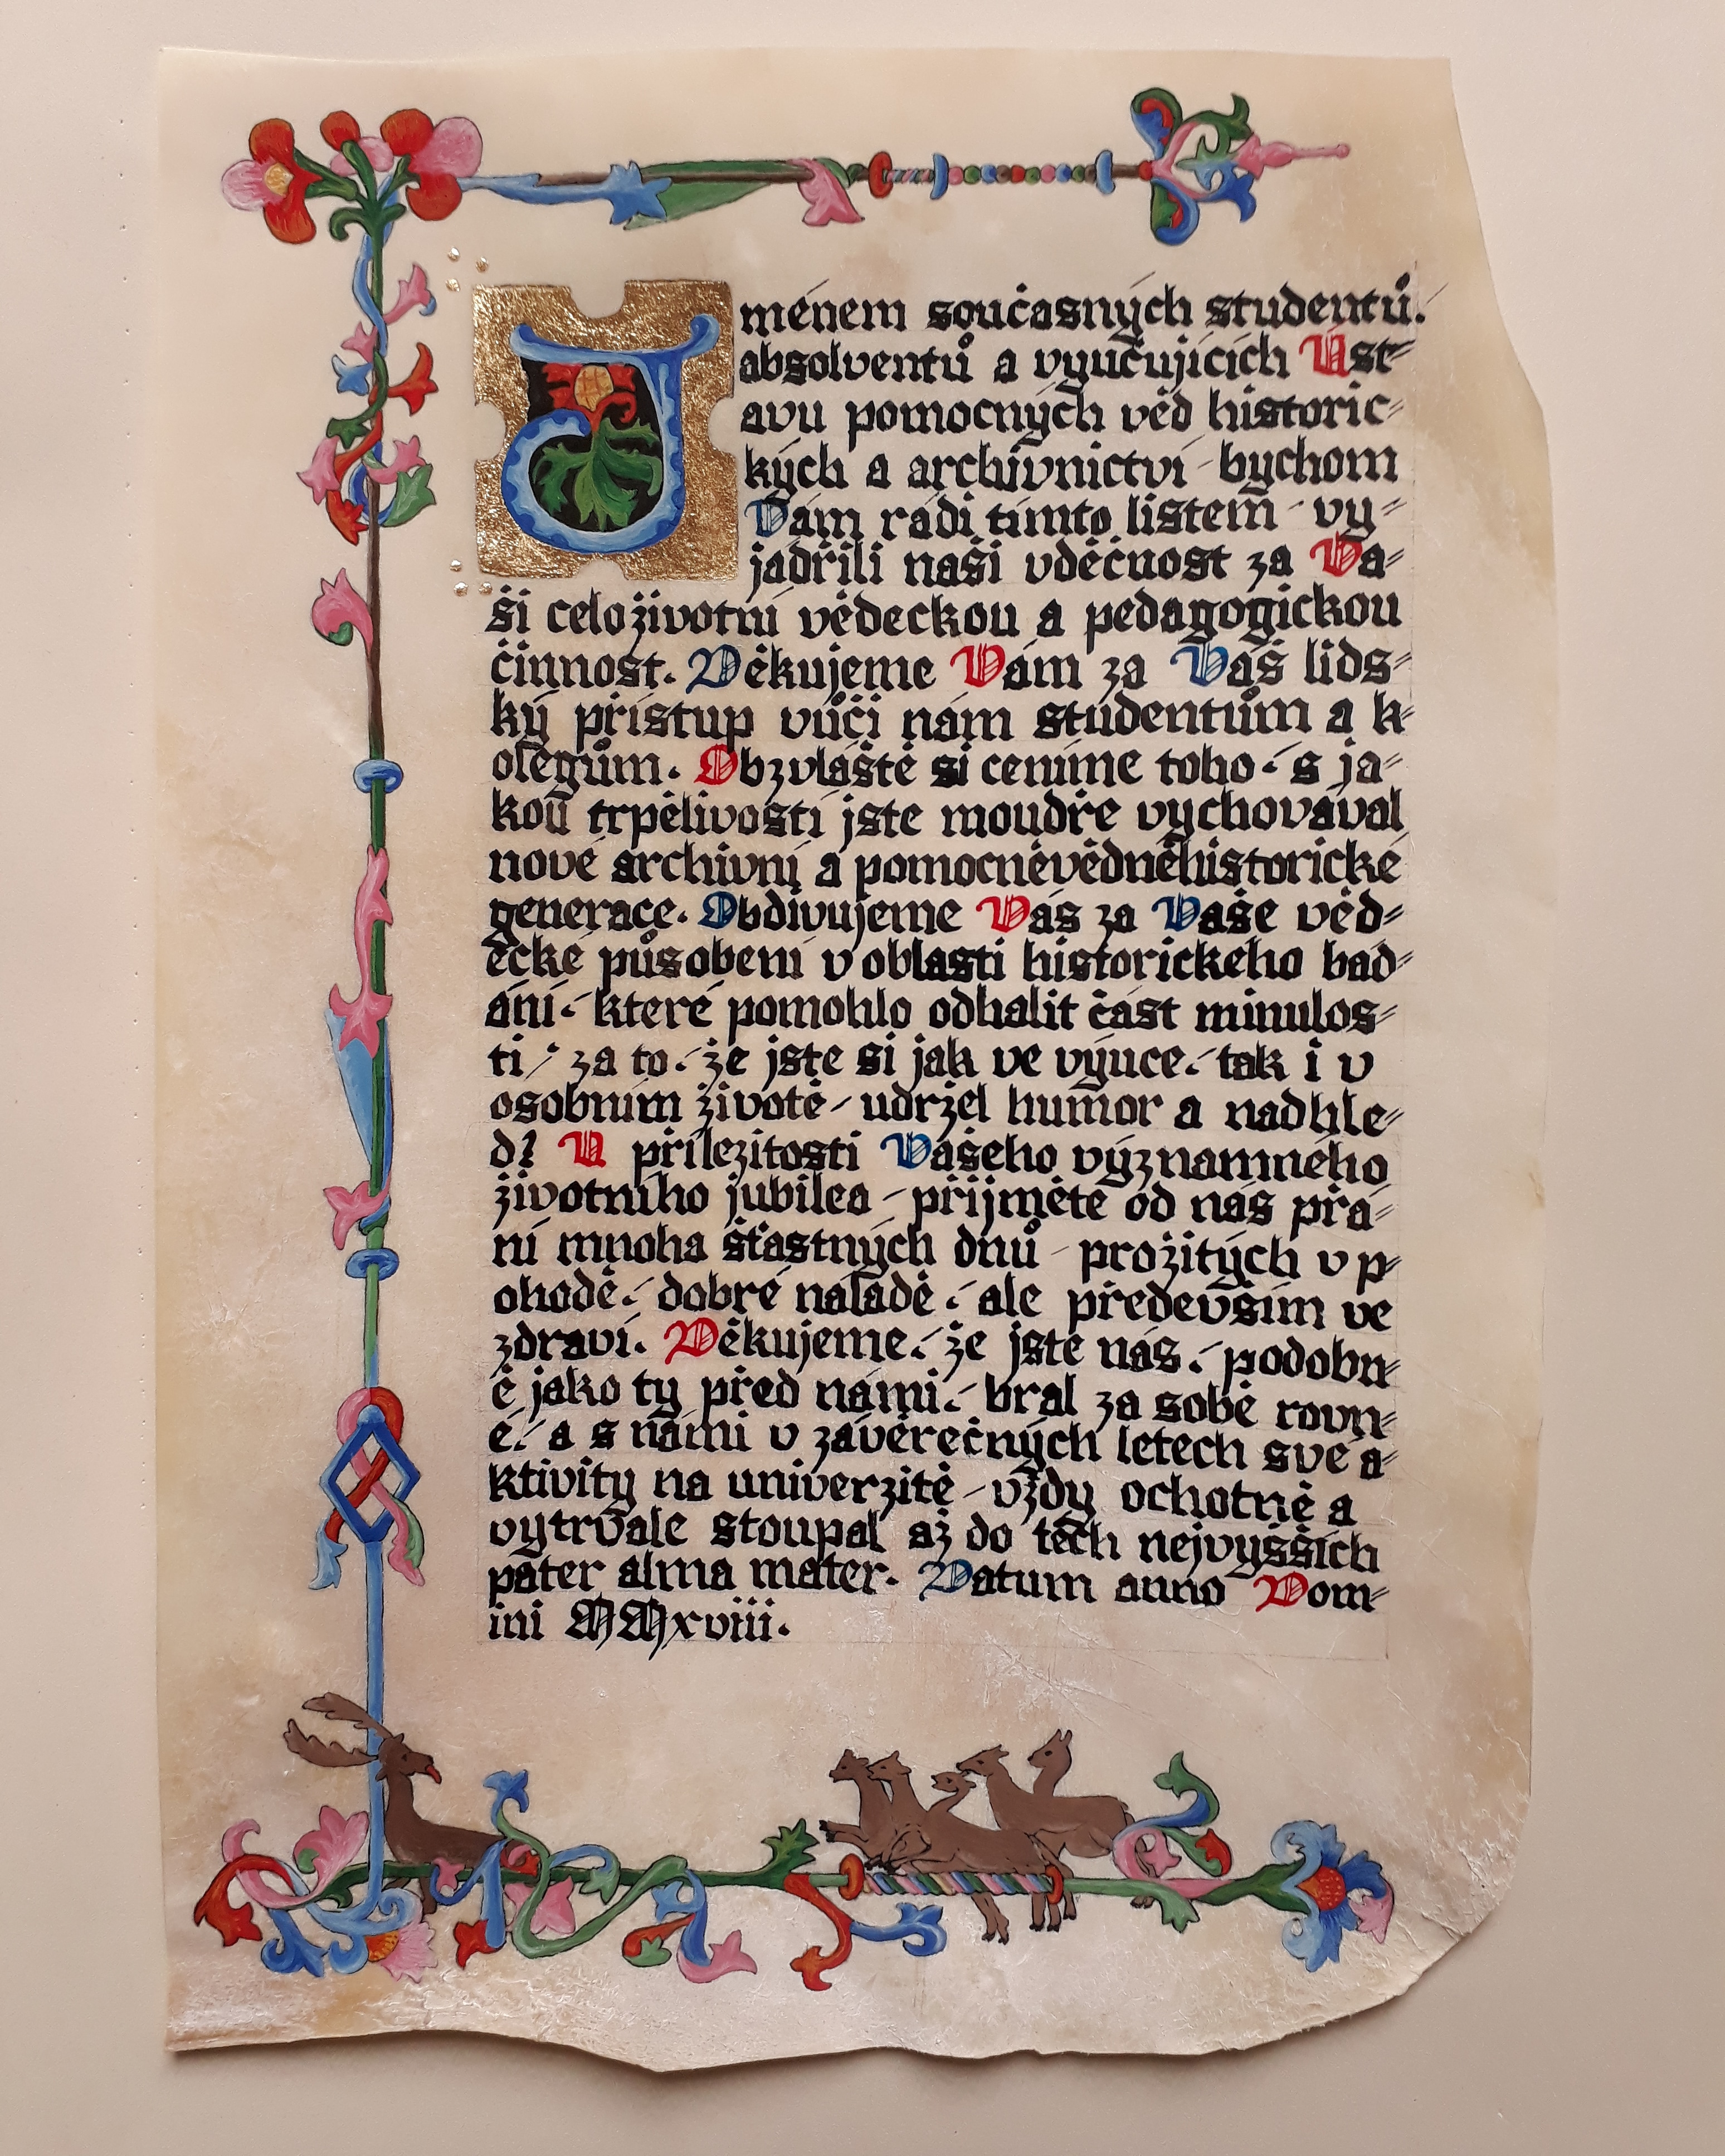 Jménem současných studentů,
absolventů a vyučujících Úst-
avu pomocných věd historic-
kých a archivnictví bychom
Vám rádi tímto listem vy-
jádřili naši vděčnost za Va-
ši celoživotní vědeckou a pedagogickou
činnost. Děkujeme Vám za Váš lids-
ký přístup vůči nám studentům a k-
olegům. Obzvláště si ceníme toho, s ja-
kou trpělivostí jste moudře vychovával
nové archivní a pomocněvědněhistorické
generace. Obdivujeme Vás za Vaše věd-
ecké působení v oblasti historického bád-
ání, které pomohlo odhalit část minulos-
ti, za to, že jste si jak ve výuce, tak i v
osobním životě, udržel humor a nadhle-
d? U příležitosti Vašeho významného
životního jubilea, přijměte od nás přá-
ní mnoha šťastných dnů, prožitých v p-
ohodě, dobré náladě, ale především ve
zdraví. Děkujeme, že jste nás, podobn-
ě jako ty před námi, bral za sobě rovn-
é, a s námi v závěrečných letech své a-
ktivity na univerzitě, vždy ochotně a
vytrvale stoupal až do těch nejvyšších
pater alma mater. Datum anno Dom-
ini MMxviii.